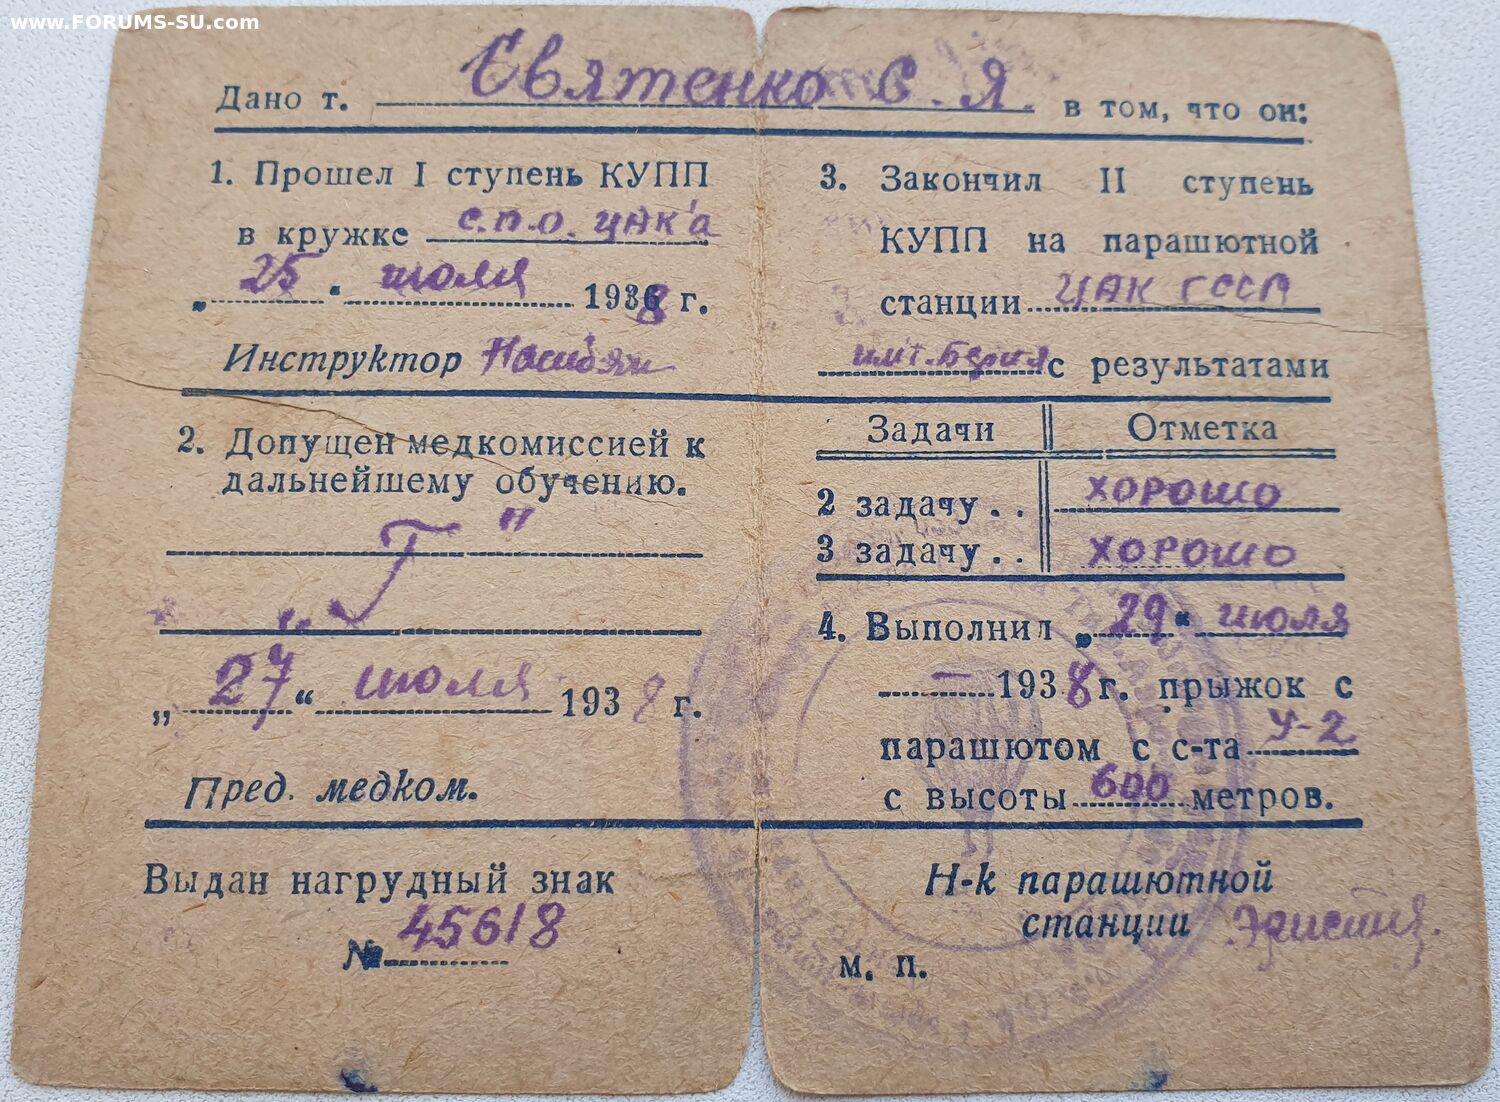 www.FORUMS-SU.com
Дано т. Святенко С. Я. в том, что он:
1. Прошел I ступень КУПП
в кружке с.п.о. ЦАК'а
„25" июля 1938 г.
Инструктор
2. Допущен медкомиссией к
дальнейшему обучению.
„Г"
„27“ июля 1938 г.
Пред. медком.
Выдан нагрудный знак
№ 45618
3. Закончил II ступень
КУПП на парашютной
станции ЦАК ГССР
им. т. Берия с результатами
Задачи Отметка
2 задачу . . хорошо
3 задачу . . хорошо
4. Выполнил „29“ июля
— 1938 г. прыжок с
парашютом с с-та У-2
с высоты 600 метров.
Н-к парашютной
станции
М. П.